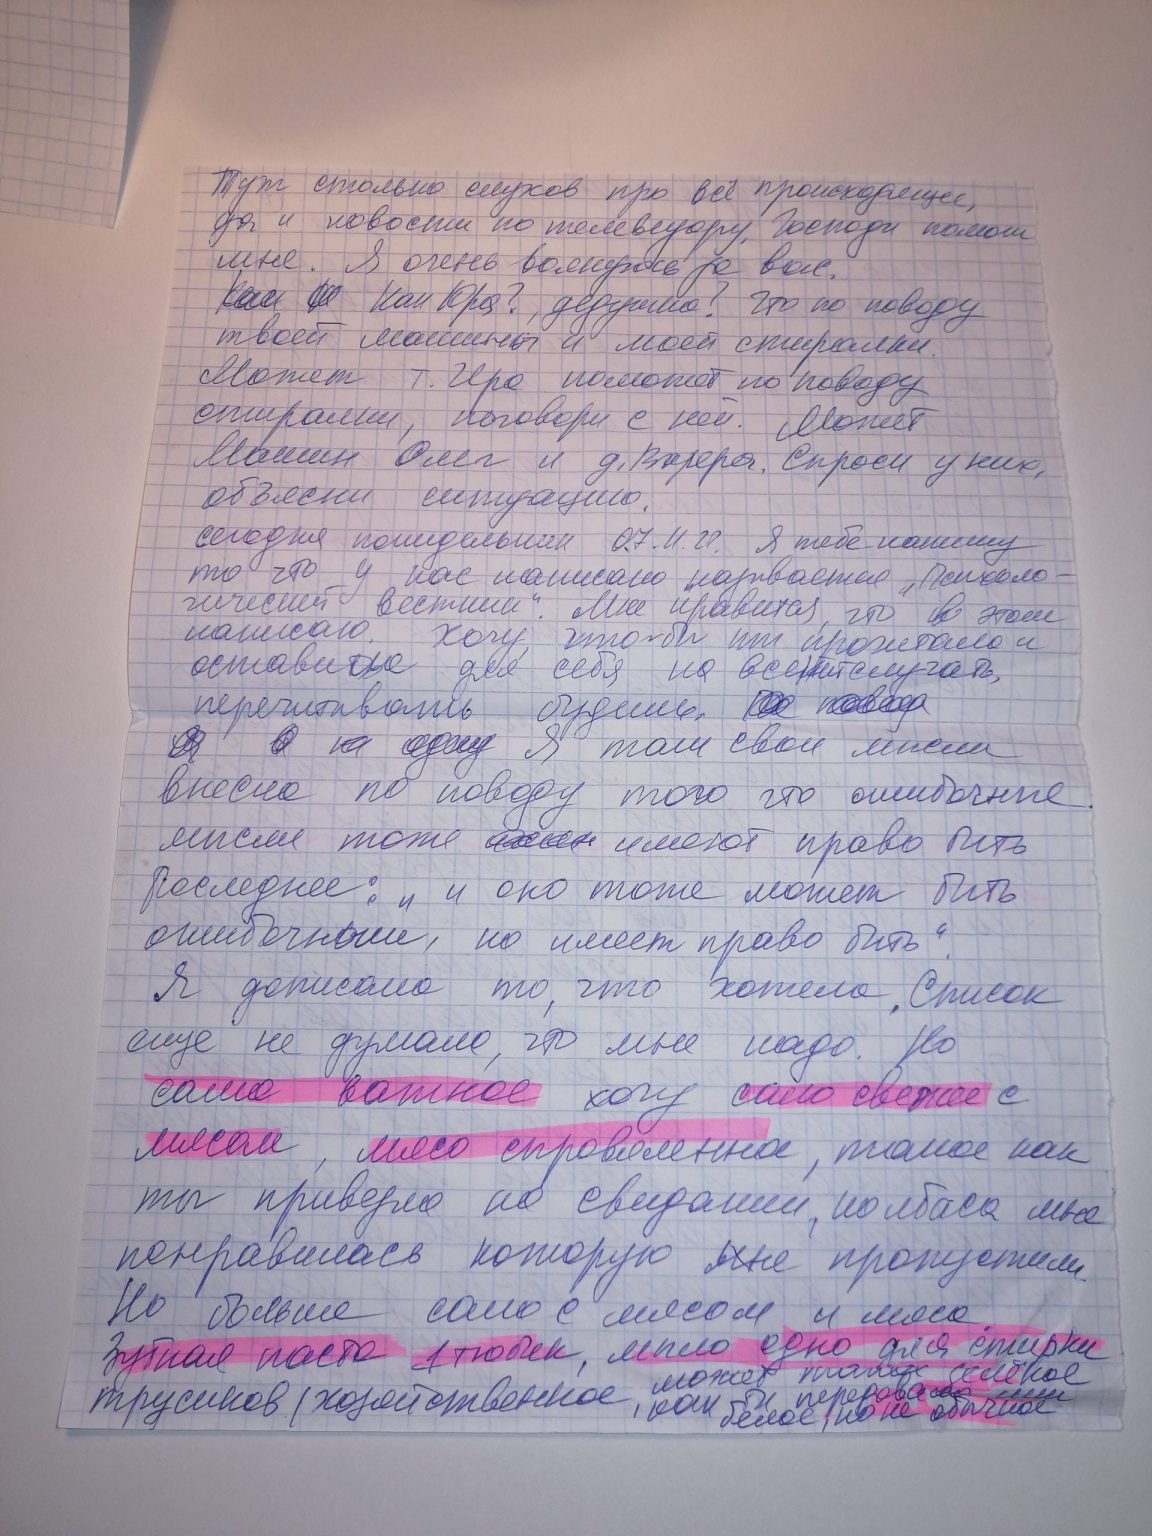 Тут столько слухов про всё происходящее,
да и новости по телевизору, Господи помоги
мне. Я очень волнуюсь за вас.
Как Юра?, дедушка? Что по поводу
твоей машины и моей стиралки.
Может т. Ира поможет по поводу
стиралки, поговори с ней. Может
Машин Олег и д. Валера. Спроси у них,
объясни ситуацию.
сегодня понидельник 07.11.22. Я тебе напишу
то что у нас написано называется „Психоло-
гический вестник“. Мне нравится, что в этом
написано. Хочу, что-бы ты прочитала и
оставила для себя на всё
перечитывать будешь.
Я там свои мысли
внесла по поводу того что ошибочные
мысли тоже имеют право быть
Последнее: „и оно тоже может быть
ошибочным, но имеет право быть“.
Я дописала то, что хотела. Список
еще не думала, что мне надо. Но
само важное хочу сало свежее с
мясом, мясо, такое как
ты привезла на свидании, колбаса мне
понравилась которую не пропустили.
Но больше сало с мясом и мясо
Зубная паста 1 тюбик, мыло одно для стирки
трусиков (хозяйственное, может такое
как бы передавала или
белое, но не обычное